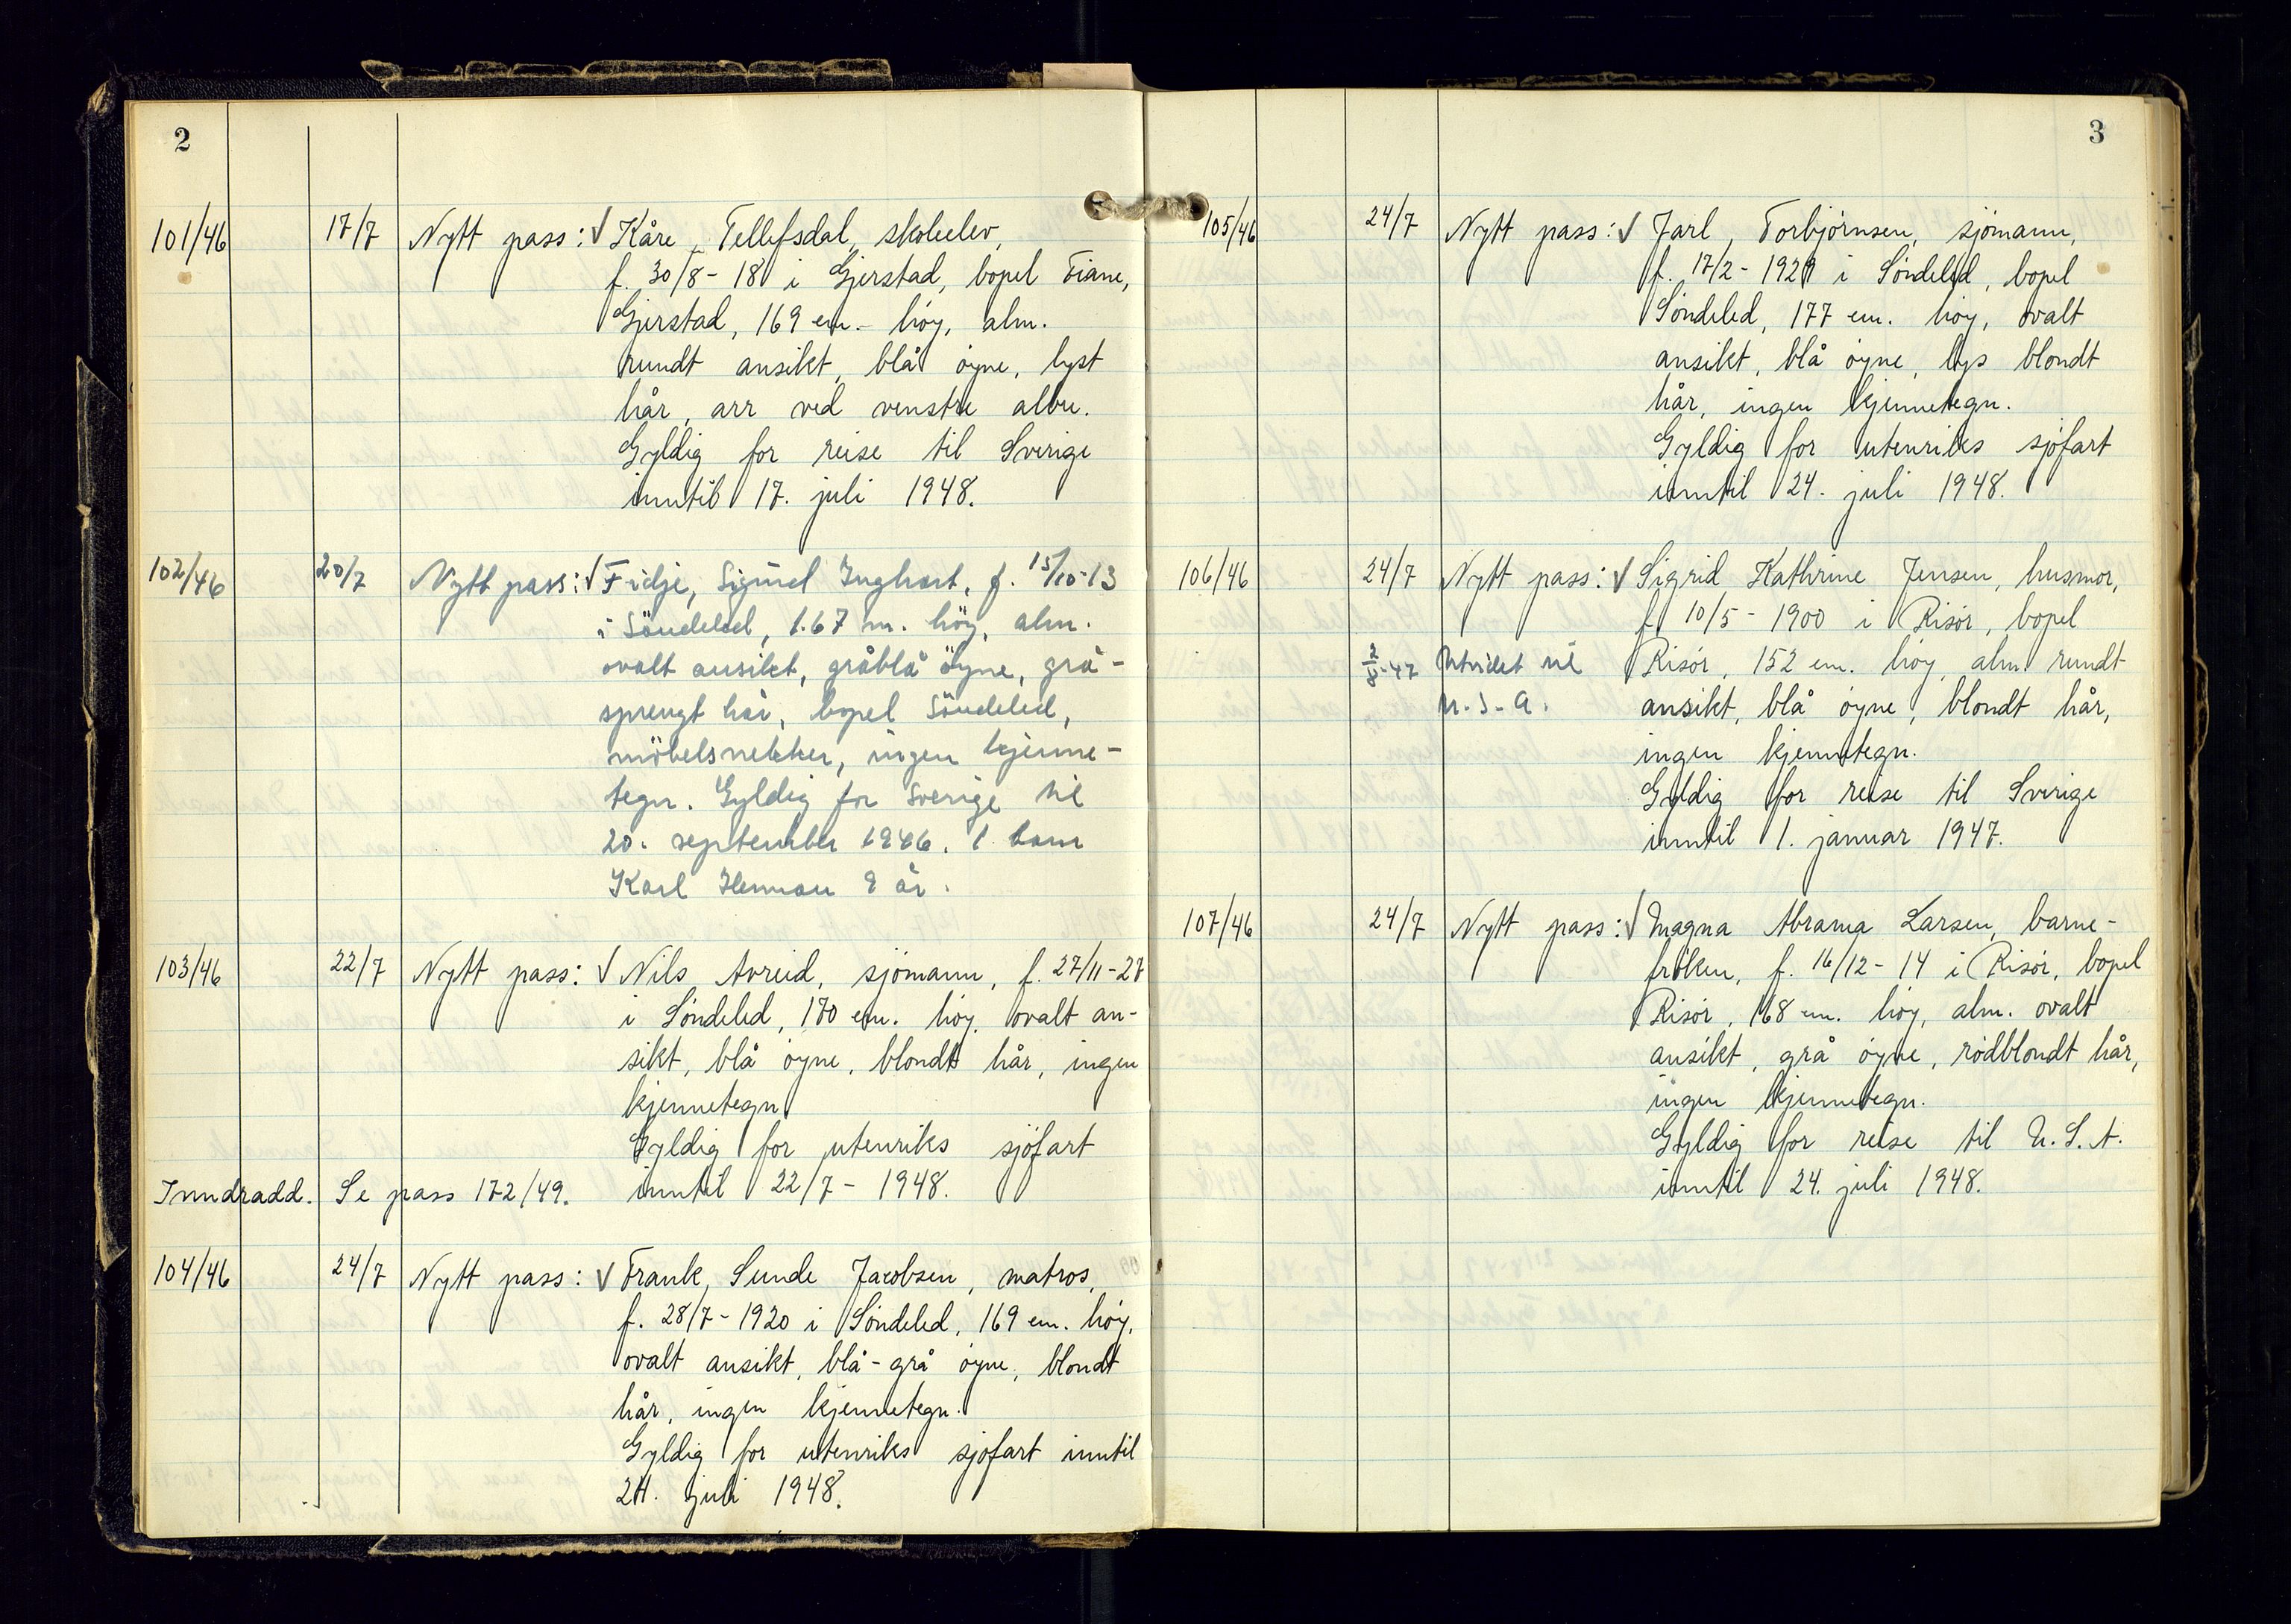 2
101/46 17/7 Nytt pass: √ Kåre Tellefsdal, skoleelev,
f. 30/8-18 i Gjerstad, bopel Fiane,
Gjerstad, 169 cm. høy, alm.
rundt ansikt, blå øyne, lyst
hår, arr ved venstre albu.
Gyldig for reise til Sverige
inntil 17. juli 1948.
102/46 20/7 Nytt pass: √ Fidje, Sigurd Inghart, f. 15/10-13
i Söndeled, 1.67 m. höy, alm.
ovalt ansikt, gråblå öyne, grå-
sprengt hår, bopel Söndeled,
möbelsnekker, ingen kjenne-
tegn. Gyldig for Sverige til
20. september 1946. 1 barn
Karl Herman 8 år.
103/46 22/7 Nytt pass: √ Nils Avreid, sjømann, f. 27/11-27
i Søndeled, 170 cm. høy, ovalt an-
sikt, blå øyne, blondt hår, ingen
kjennetegn
Gyldig for utenriks sjøfart
Inndradd. Se pass 172/49. inntil 22/7-1948.
104/46 24/7 Nytt pass: √ Frank Sunde Jacobsen, matros,
f. 28/7-1920 i Søndeled, 169 cm. høy,
ovalt ansikt, blå-grå øyne, blondt
hår, ingen kjennetegn.
Gyldig for utenriks sjøfart inntil
24. juli 1948.
3
105/46 24/7 Nytt pass: √ Jarl Torbjørnsen, sjømann,
f. 17/2-1929 i Søndeled, bopel
Søndeled, 177 cm. høy, ovalt
ansikt, blå øyne, lys blondt
hår, ingen kjennetegn.
Gyldig for utenriks sjøfart
inntil 24. juli 1948.
106/46 24/7 Nytt pass: √ Sigrid Kathrine Jensen, husmor,
f. 10/5-1900 i Risør, bopel
2/8-47 Utvidet til Risør, 152 cm. høy, alm. rundt
U.S.A. ansikt, blå øyne, blondt hår,
ingen kjennetegn.
Gyldig for reise til Sverige
inntil 1. januar 1947.
107/46 24/7 Nytt pass: √ Magna Abrama Larsen, barne-
frøken, f. 16/12-14 i Risør, bopel
Risør, 168 cm. høy, alm. ovalt
ansikt, grå øyne, rødblondt hår,
ingen kjennetegn.
Gyldig for reise til U.S.A.
inntil 24. juli 1948.